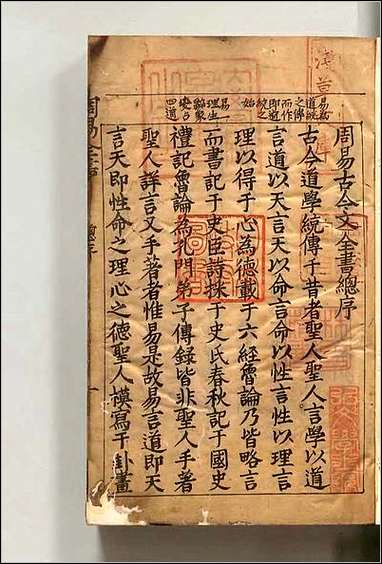 周易古今文全書總序
古今道學統傳于昔者聖人聖人言學以道
言道以天言天以命言命以性言性以理言
理以得于心為德載于六經魯論乃皆略言
而書記于史臣詩採于史氏春秋記于國史
禮記魯論為孔門弟子傳錄皆非聖人手著
聖人詳言又手著者惟易是故易言道即天
言天即性命之理心之德聖人摸寫于卦畫